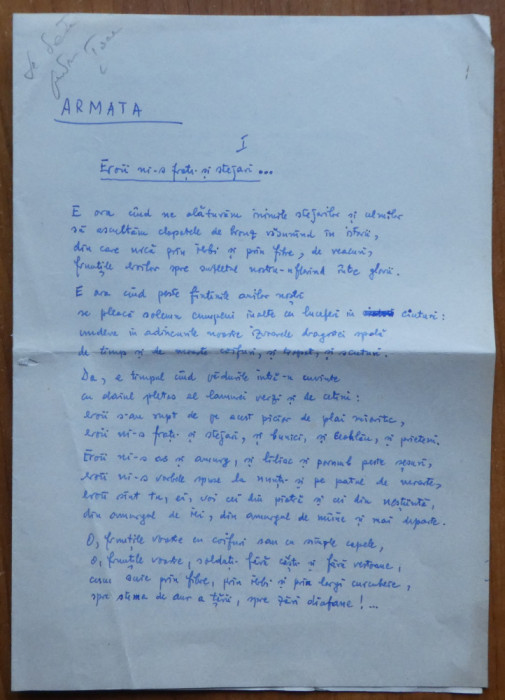 ARMATA
I
Eroii ni-s frați și stejari...
E ora cînd ne alăturăm inimile stejarilor și ulmilor
să ascultăm clopotele de bronz răsunînd în istorii,
din care urcă prin ierbi și prin fibre, de veacuri,
frunțile eroilor spre sufletul nostru oferind zile glorii.
E ora cînd peste fîntînile anilor noștri
se pleacă solemn cumpeni înalte cu luceferi în ciuturi:
undeva în adîncurile noastre izvoarele dragostei spală
de timp și de moarte coifuri, și, și scuturi.
Da, e timpul cînd pădurile intră-n cuvinte
cu alaiul pletos al luminii verzi și de cetini:
eroii s-au rupt de pe acest picior de plai mioritic,
eroii ni-s frați și stejari, și bunici, și, și prieteni.
Eroii ni-s os și amurg, și liliac și porumb peste șesuri,
eroii ni-s vorbele spuse la nunți și pe patul de moarte,
eroii sînt tu, ei, voi cei din piatră și cei din neștiință,
din amurgul de ieri, din amurgul de mîine și mai departe.
O, frunțile voastre cu coifuri sau cu simple capele,
o, frunțile voastre, soldați fără căști și fără vestoane,
cum suie prin fibre, prin ierbi și prin largi curcubeie,
spre stema de aur a țării, spre zări diafane!...